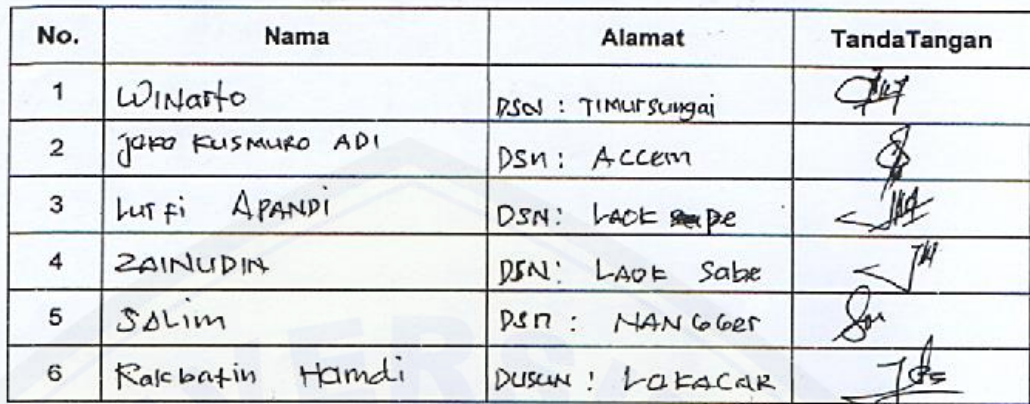 No. Nama Alamat TandaTangan
1 WINarto DSN : TIMUrSungai
2 JOKO KUSMURO ADI DSn : ACCem
3 LutFi APANDI DSN: LAOK
4 ZAINUDIN DSN: LAOK Sabe
5 SALim DSn : NANGGer
6 Hamdi DUSUN : LOKACAR